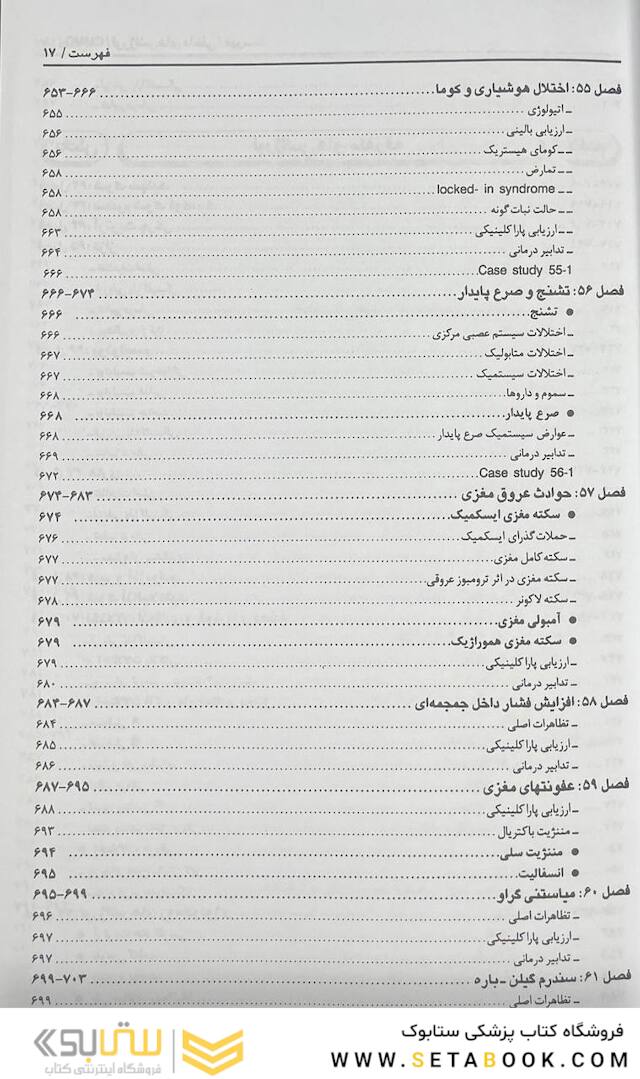 فهرست / ۱۷
فصل ۵۵: اختلال هوشیاری و کوما ........ ۶۵۳-۶۶۶
ـ اتیولوژی ........ ۶۵۵
ـ ارزیابی بالینی ........ ۶۵۶
ـ ـ کومای هیستریک ........ ۶۵۶
ـ ـ تمارض ........ ۶۵۸
ـ ـ locked- in syndrome ........ ۶۵۸
ـ ـ حالت نبات گونه ........ ۶۵۸
ـ ـ ارزیابی پارا کلینیکی ........ ۶۶۳
ـ تدابیر درمانی ........ ۶۶۴
Case study 55-1 ........ ۶۶۶
فصل ۵۶: تشنج و صرع پایدار ........ ۶۶۶-۶۷۴
● تشنج ........ ۶۶۶
ـ اختلالات سیستم عصبی مرکزی ........ ۶۶۶
ـ اختلالات متابولیک ........ ۶۶۷
ـ اختلالات سیستمیک ........ ۶۶۷
ـ سموم و داروها ........ ۶۶۸
● صرع پایدار ........ ۶۶۸
ـ عوارض سیستمیک صرع پایدار ........ ۶۶۸
ـ تدابیر درمانی ........ ۶۶۹
Case study 56-1 ........ ۶۷۲
فصل ۵۷: حوادث عروق مغزی ........ ۶۷۴-۶۸۳
● سکته مغزی ایسکمیک ........ ۶۷۴
ـ حملات گذرای ایسکمیک ........ ۶۷۶
ـ سکته کامل مغزی ........ ۶۷۷
ـ سکته مغزی در اثر ترومبوز عروقی ........ ۶۷۷
ـ سکته لاکونر ........ ۶۷۸
● آمبولی مغزی ........ ۶۷۹
● سکته مغزی هموراژیک ........ ۶۷۹
ـ ارزیابی پارا کلینیکی ........ ۶۷۹
ـ تدابیر درمانی ........ ۶۸۰
فصل ۵۸: افزایش فشار داخل جمجمه‌ای ........ ۶۸۴-۶۸۷
ـ تظاهرات اصلی ........ ۶۸۴
ـ ارزیابی پارا کلینیکی ........ ۶۸۵
ـ تدابیر درمانی ........ ۶۸۶
فصل ۵۹: عفونتهای مغزی ........ ۶۸۷-۶۹۵
ـ ارزیابی پارا کلینیکی ........ ۶۸۸
ـ مننژیت باکتریال ........ ۶۹۳
● مننژیت سلی ........ ۶۹۴
● انسفالیت ........ ۶۹۵
فصل ۶۰: میاستنی گراو ........ ۶۹۵-۶۹۹
ـ تظاهرات اصلی ........ ۶۹۶
ـ ارزیابی پارا کلینیکی ........ ۶۹۷
ـ تدابیر درمانی ........ ۶۹۷
فصل ۶۱: سندرم گیلن ـ باره ........ ۶۹۹-۷۰۳
ـ تظاهرات اصلی ........ ۶۹۹
فروشگاه کتاب پزشکی ستابوک
WWW.SETABOOK.COM
ستابوک
فروشگاه اینترنتی کتاب